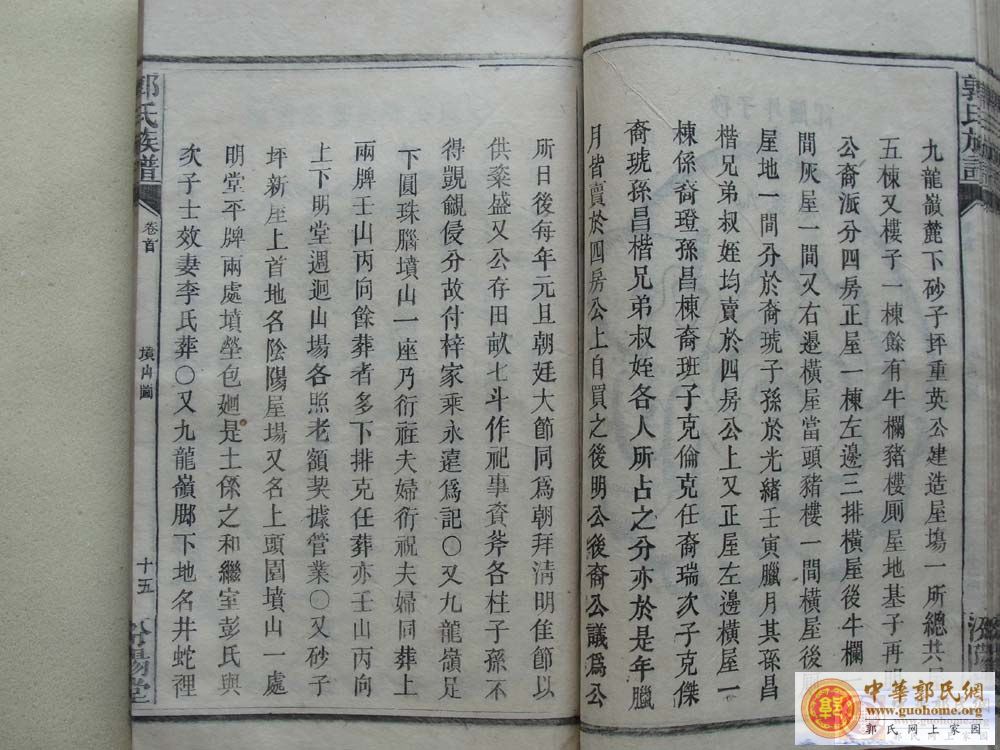 九龍嶺麓下砂子坪重英公建造屋塲一所總共
五棟又樓子一棟餘有牛欄豬樓厠屋地基子再
公裔派分四房正屋一棟左邊三排橫屋後牛欄
間灰屋一間又右邊橫屋當頭豬樓一間橫屋後
屋地一間分於裔琥子孫於光緒壬寅臘月其孫昌
楷兄弟叔姪均賣於四房公上又正屋左邊橫屋一
棟係裔璒孫昌棟裔班子克倫克任裔瑞次子克傑
裔琥孫昌楷兄弟叔姪各人所占之分亦於是年臘
月皆賣於四房公上自買之後明公後裔公議爲公
所日後每年元旦朝廷大節同爲朝拜淸明佳節以
供粢盛又公存田畝七斗作祀事資斧各柱子孫不
得覬覦侵分故付梓家乘永遠爲記〇又九龍嶺是
下圓珠腦墳山一座乃衍祍夫婦衍祝夫婦同葬上
兩牌壬山丙向餘葬者多下排克任葬亦壬山丙向
上下明堂週迴山塲各照老額契據管業〇又砂子
坪新屋上首地名陰陽屋塲又名上頭園墳山一處
明堂平牌兩處墳塋包廻是士傑之和繼室彭氏與
次子士效妻李氏葬〇又九龍嶺脚下地名井蛇裡
郭氏族譜
卷首
墳山圖
十五
汾陽堂
郭氏族譜
中華郭氏網
www.guohome.org
郭氏网上家园